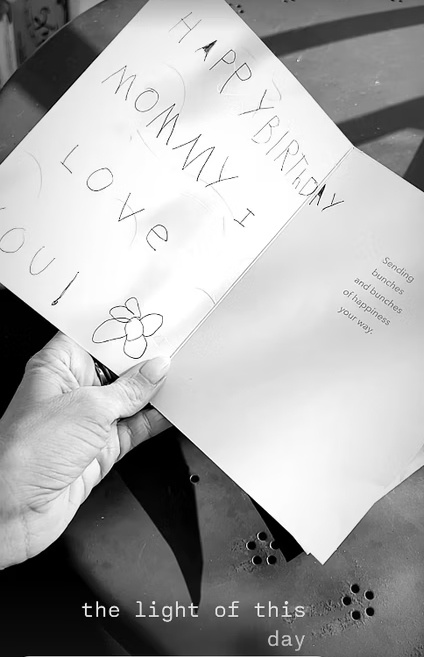 HAPPY BIRTHDAY
MOMMY I
LOVe
YOU!
Sending
bunches
and bunches
of happiness
your way.
the light of this
day